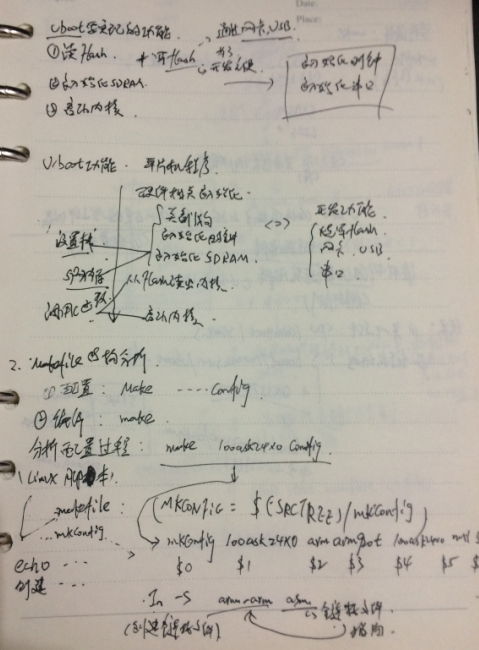 Date:
Place:
Uboot要实现的功能 通过网卡,USB
①读flash 烧写flash 为了 开发方便
②初始化SDRAM. 初始化时钟 初始化串口
③启动内核.
Uboot功能. 单片机程序.
硬件相关初始化.
关看门狗 <-> 开发功能.
设置栈 初始化时钟 烧写flash
初始化SDRAM. 网卡 USB
调用C函数 从flash读出内核 串口
启动内核.
2. makefile结构分析
①配置: make ····config
②编译: make.
分析配置过程: make 100ask24x0_config
(Linux
makefile: (MKCONFIG = $(SRCTREE)/mkconfig)
mkconfig → mkconfig 100ask24x0 arm arm920t 100ask24x0 null
echo ··· $0 $1 $2 $3 $4 $5 $
创建 ···
ln -s asm-arm asm 链接文件.
(创建链接文件) 指向.